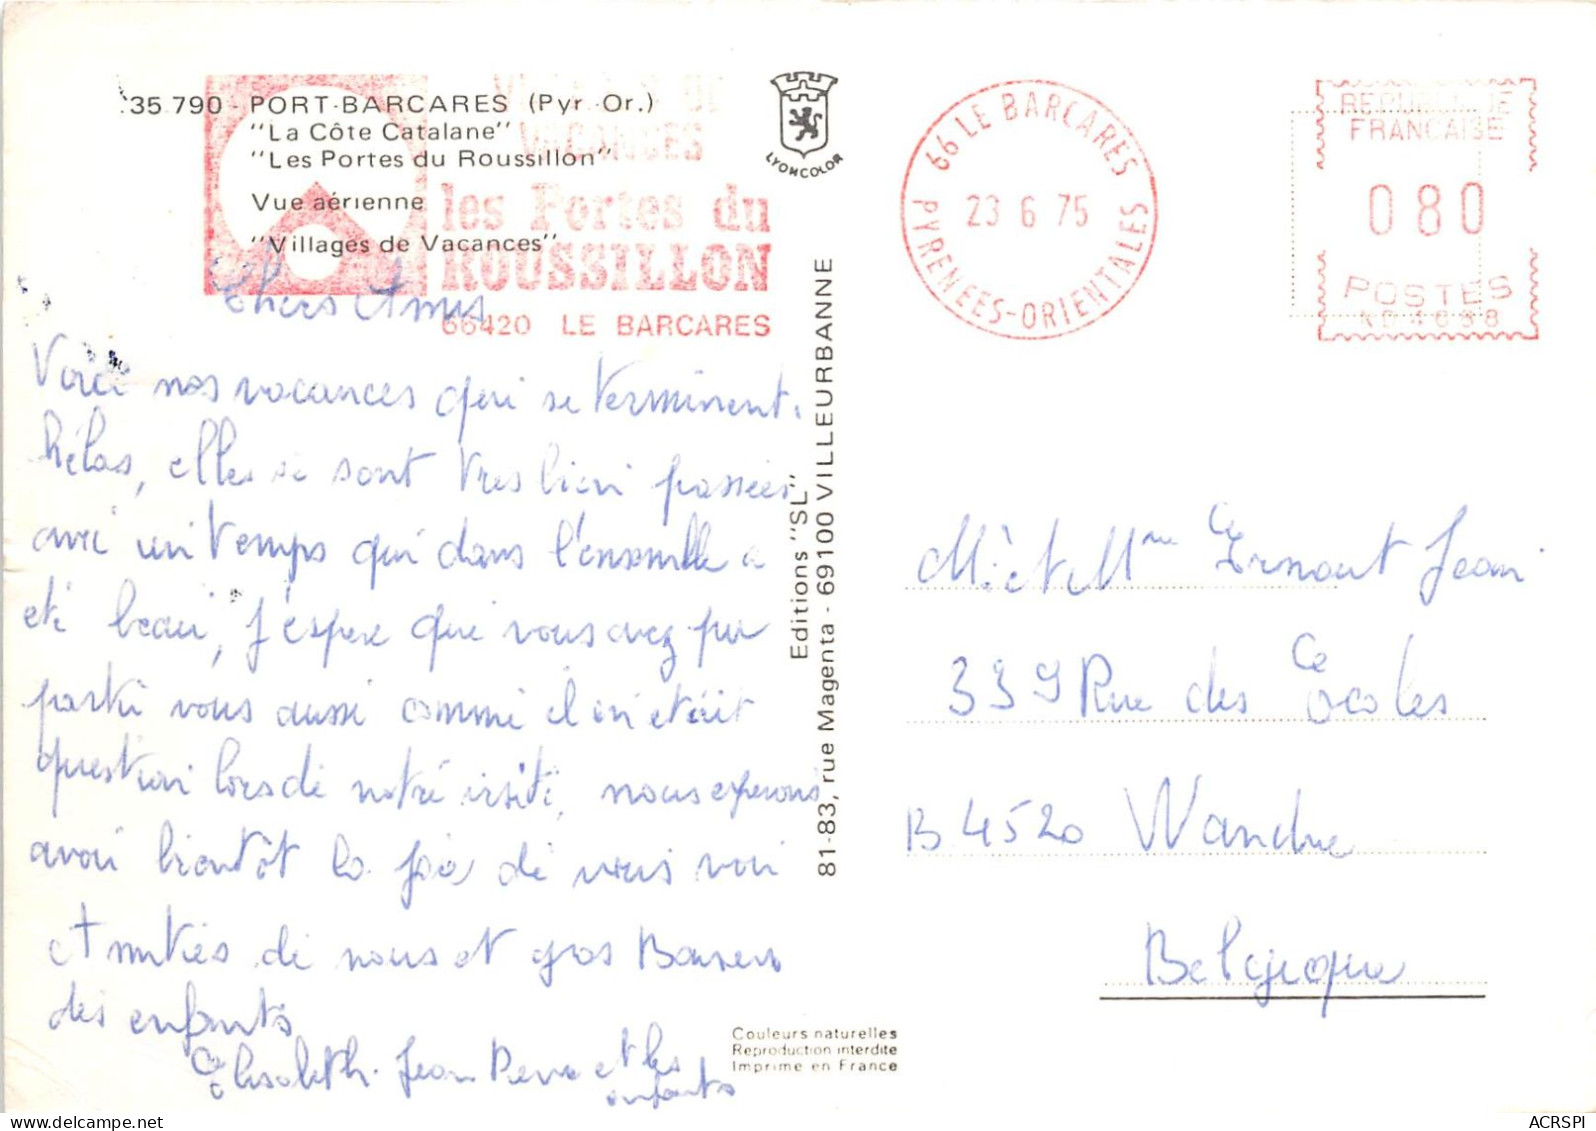 35 790 - PORT-BARCARES (Pyr. Or.)
"La Côte Catalane"
"Les Portes du Roussillon"
Vue aérienne
"Villages de Vacances"
VACANCES
les Portes du
ROUSSILLON
66420 LE BARCARES
LYONCOLOR
66 LE BARCARES
23 6 75
PYRENEES-ORIENTALES
REPUBLIQUE
FRANCAISE
080
POSTES
Chers Amis
Voici nos vacances qui se terminent.
hélas, elles se sont très bien passées
avec un temps qui dans l'ensemble a
été beau, J'espère que vous avez pu
partir vous aussi comme il en était
question lors de notre visite, nous espérons
avoir bientôt la joie de vous voir
Amitiés de nous et gros Baisers
des enfants
Elisabeth. Jean Pierre et les
enfants
Editions "SL"
81-83, rue Magenta - 69100 VILLEURBANNE
Couleurs naturelles
Reproduction interdite
Imprimé en France
Mr et Mme Ernout Jean
339 Rue des Ecoles
B 4520 Wandre
Belgique
ACRSPI